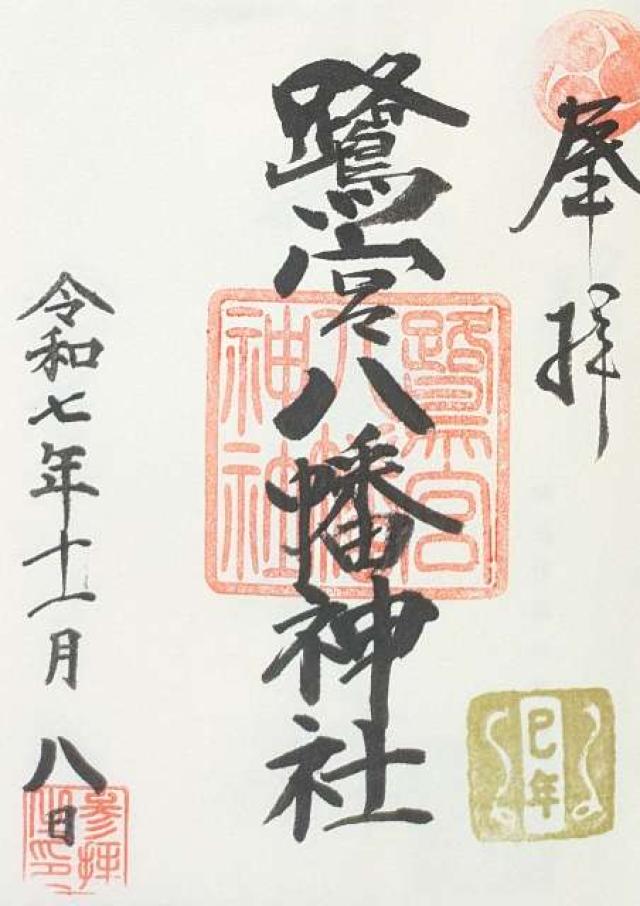 奉拝
鷺宮八幡神社
鷺宮
八幡
神社
巳年
令和七年十一月八日
参拝